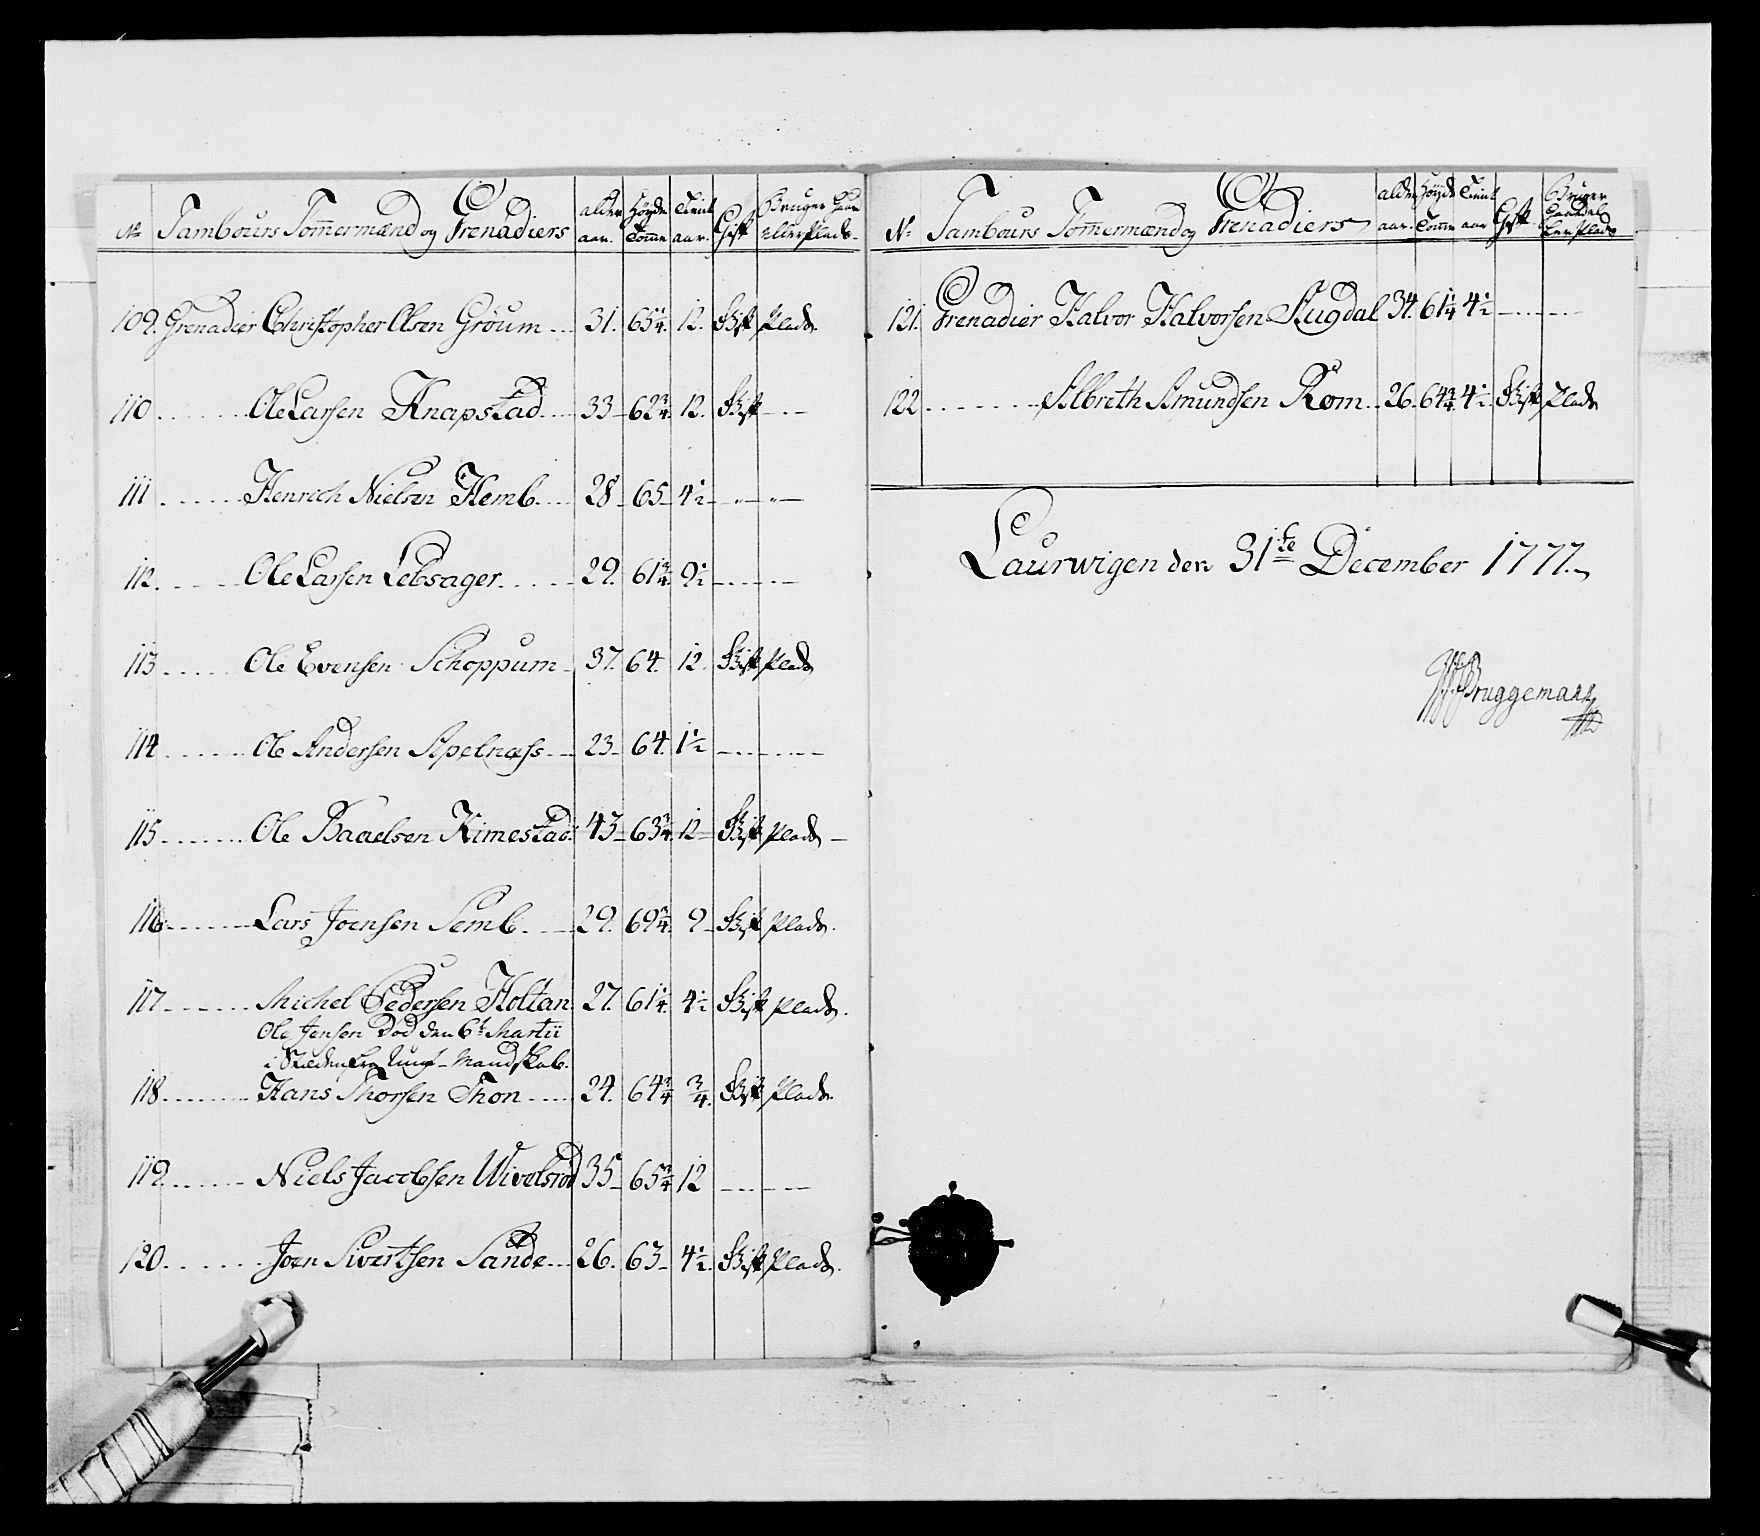 No Tambours Tommermænd og Grenadiers alder aar. Høyde Tomme Tient aar. Gift Bruger Gaard eller Plads.
109. Grenadier Christopher Olsen Gröum 31. 65 1/4. 12. Gift Plads.
110 Ole Larsen Knapstad 33 62 3/4 12. Gift
111 Henrich Nielsen Hemb 28 65 4 1/2
112. Ole Larsen Lebsager 29. 61 3/4 9 1/2
113 Ole Evensen Schoppum 37. 64. 12. Gift Plads
114 Ole Andersen Apelnæss 23 64. 1 1/2
115 Ole Baaelsen Kimestad 43 63 3/4 12 Gift Plads
116 Lars Joensen Semb 29. 69 3/4. 9 Gift Plads.
117 Michel Pedersen Holtan 27. 61 1/4. 4 1/2 Gift Plads.
Ole Jensen Död den 6te Martii
i Stæden fra Mandskab.
118 Hans Thorsen Thon 24. 64 3/4 3/4. Gift Plads.
119 Niels Jacobsen Wivelsröd 35 65 3/4 12
120. Joen Sivertsen Sande 26. 63 4 1/2. Gift Plads.
No Tambours Tommermænd og Grenadiers alder aar. Høyde Tomme Tient aar Gift Bruger Gaard el. Plads
121. Grenadier Halvor Halvorsen Augdal 34. 61 1/4 4 1/2
122 Albreth Amundsen Röm 26. 64 3/4 4 1/2. Gift Plads
Laurwigen den 31te December 1777.
Bruggemann